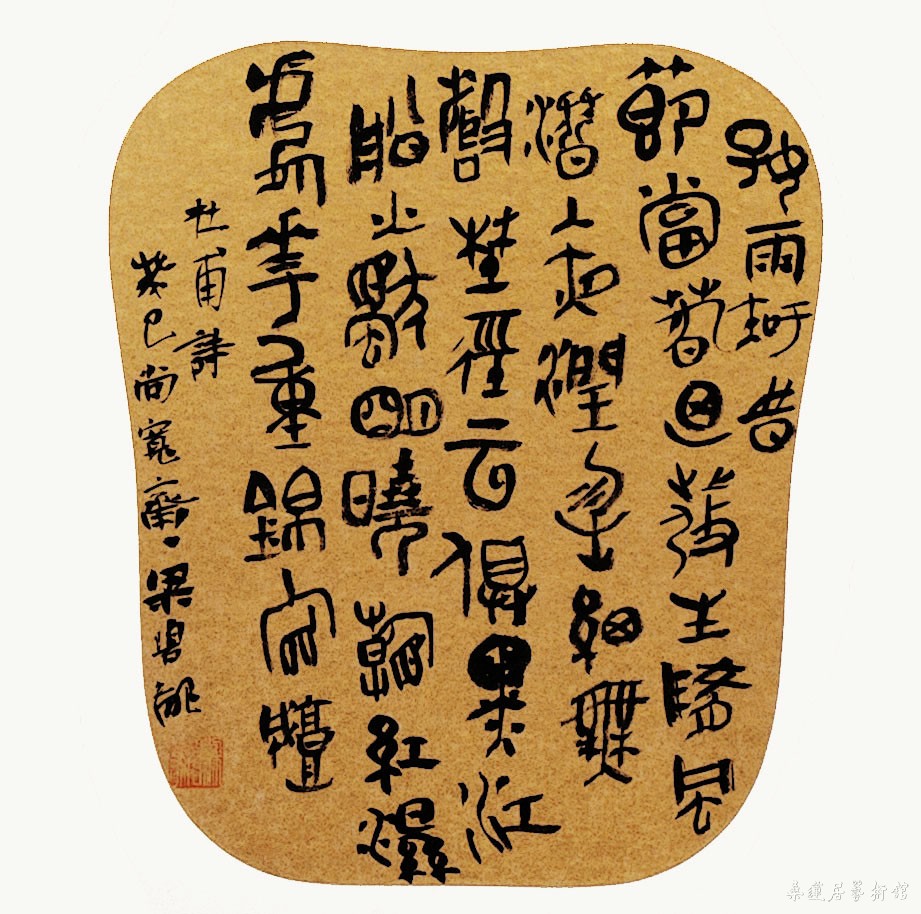 好雨知時
節當春迺發生隨風
潛入夜潤物細無
聲埜徑云俱黑江
船火獨明曉看紅濕
處華重錦官城
杜甫詩
癸巳尚寬齋梁
桑蓮居藝術館